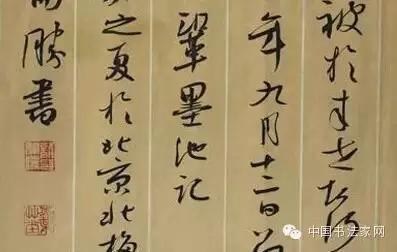 被於来世者
年九月十二日
鞏墨池记
之夏於北京北
勝書
中国书法家网